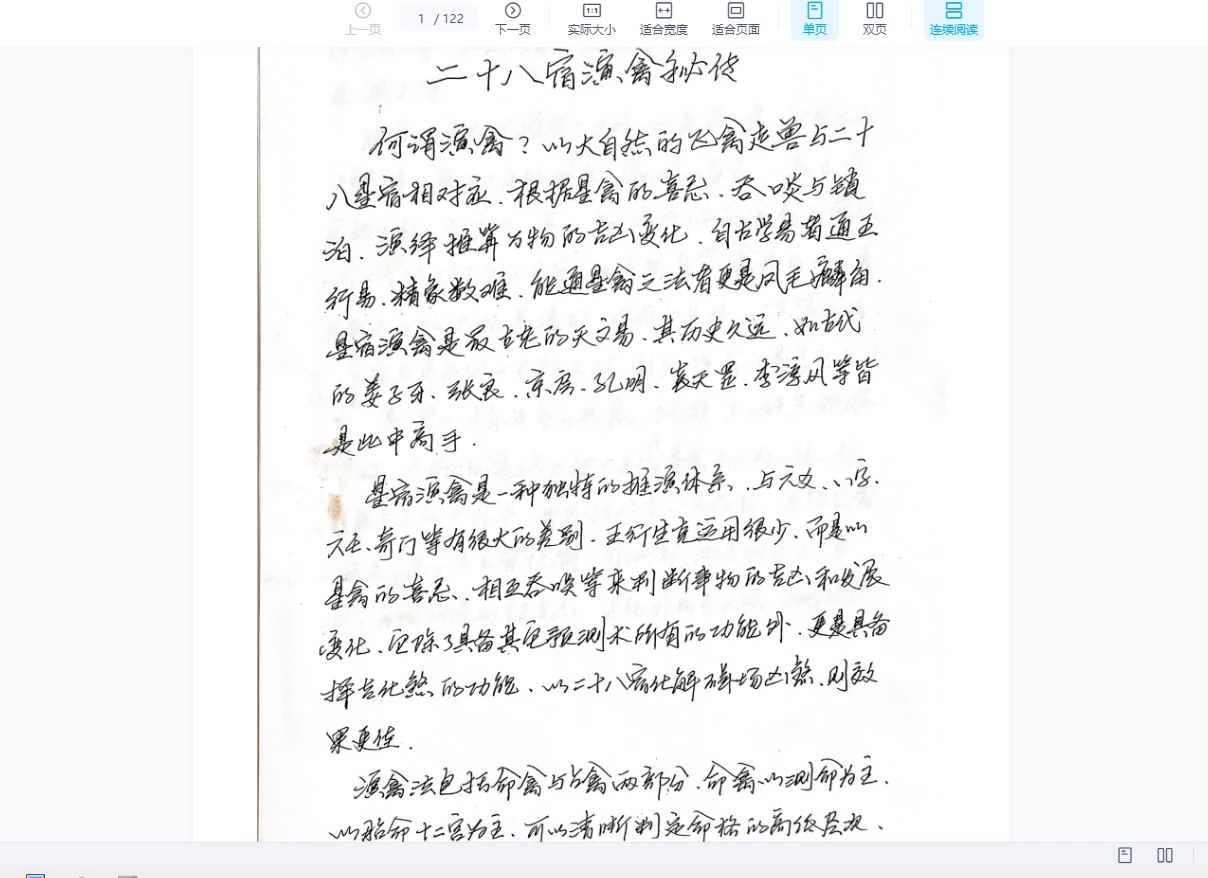 上一页
1 / 122
下一页
1:1
实际大小
适合宽度
适合页面
单页
双页
连续阅读
二十八宿演禽秘传
何谓演禽？以大自然的飞禽走兽与二十
八星宿相对应.根据星禽的喜忌.吞啖与锁
泊.演绎推算万物的吉凶变化.自古学易者通五
行易.精象数难.能通星禽之法者更是凤毛麟角.
星宿演禽是最古老的天文易.其历史久远.如古代
的姜子牙、张良.京房.孔明.袁天罡.李淳风等皆
是此中高手.
星宿演禽是一种独特的推演体系.与六爻、八字.
六壬、奇门等有很大的差别.五行生克运用很少.而是以
星禽的喜忌、相互吞啖等来判断事物的吉凶和发展
变化.它除了具备其它预测术所有的功能外.更是具备
择吉化煞的功能.以二十八宿化解磁场凶煞.则效
果更佳.
演禽法包括命禽与占禽两部分.命禽以测命为主.
以胎命十二宫为主.可以清晰判定命格的高低层次、